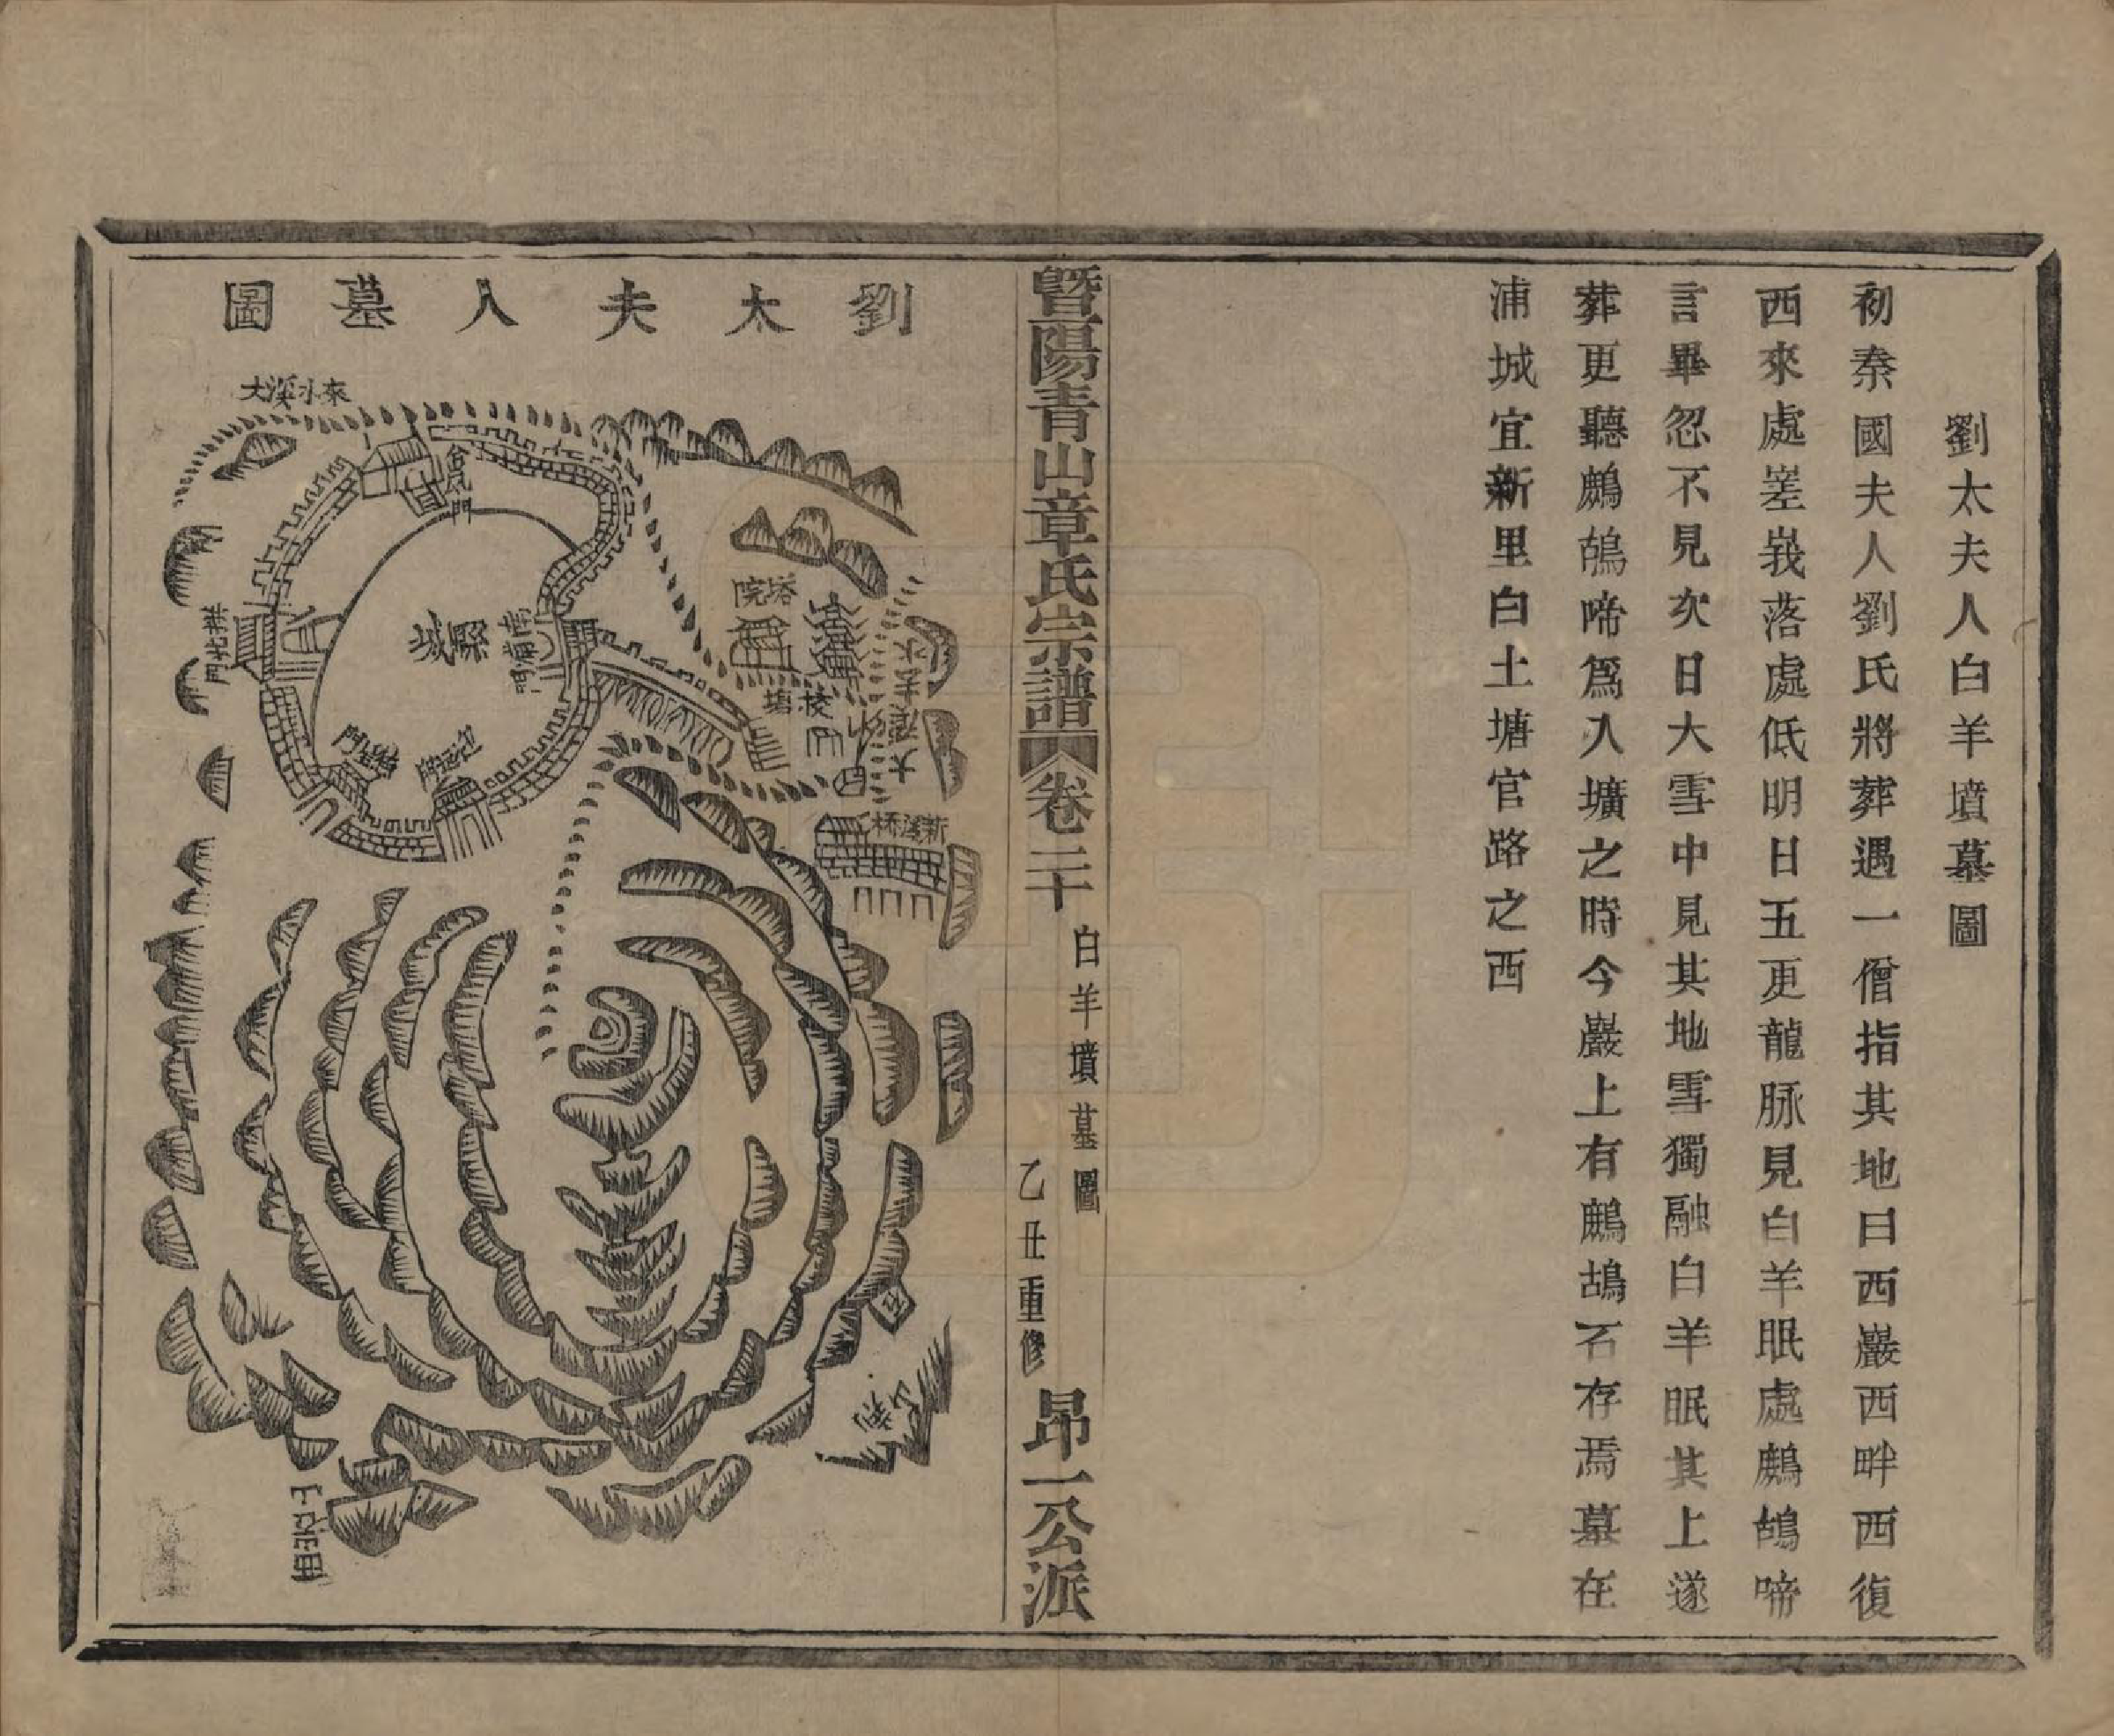 劉太夫人白羊墳墓圖
初秦國夫人劉氏將葬遇一僧指其地曰西巖西畔西復
西來處嵳峩落處低明日五更龍脉見白羊眠處鷓鴣啼
言畢忽不見次日大雪中見其地雪獨融白羊眠其上遂
葬更聽鷓鴣啼爲入壙之時今巖上有鷓鴣石存焉墓在
浦城宜新里白土塘官路之西
暨陽青山章氏宗譜
卷二十
白羊墳墓圖
乙丑重修
昂一公派
劉太夫人墓圖
大溪水來
縣城
南浦門
塔院
大溪去水
新溪橋